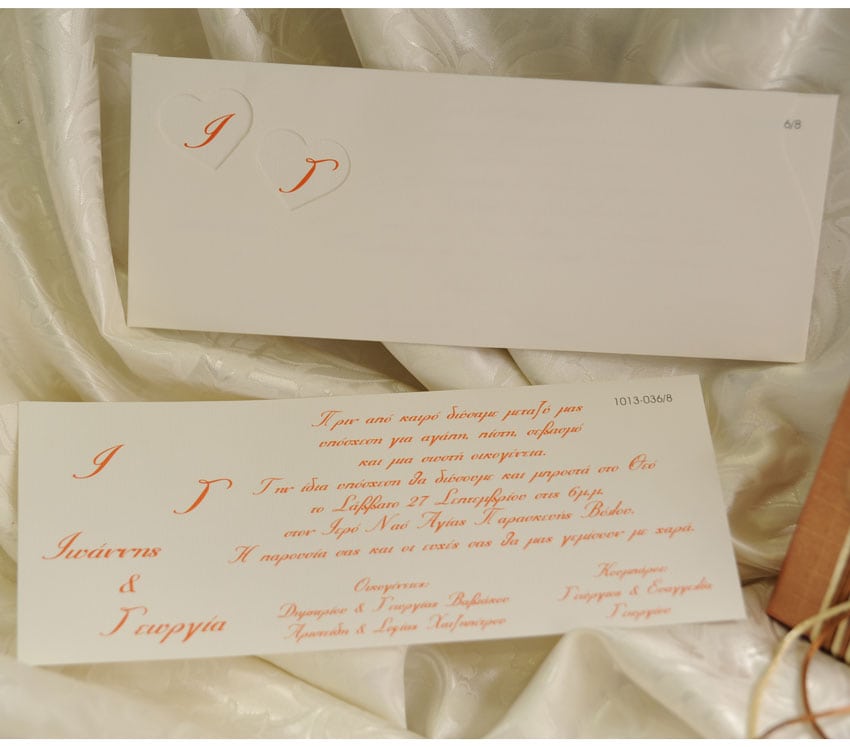 Ι
Γ
6/8
1013-036/8
Ι
Γ
Ιωάννης
&
Γεωργία
Πριν από καιρό δώσαμε μεταξύ μας
υπόσχεση για αγάπη, πίστη, σεβασμό
και μια σωστή οικογένεια.
Την ίδια υπόσχεση θα δώσουμε και μπροστά στο Θεό
το Σάββατο 27 Σεπτεμβρίου στις 6μ.μ.
στον Ιερό Ναό Αγίας Παρασκευής Βόλου.
Η παρουσία σας και οι ευχές σας θα μας γεμίσουν με χαρά.
Οικογένειες
Δημητρίου & Γεωργίας
Αριστείδη & Σοφίας
Κουμπάροι
Γεώργιος & Ευαγγελία
Γεωργίου